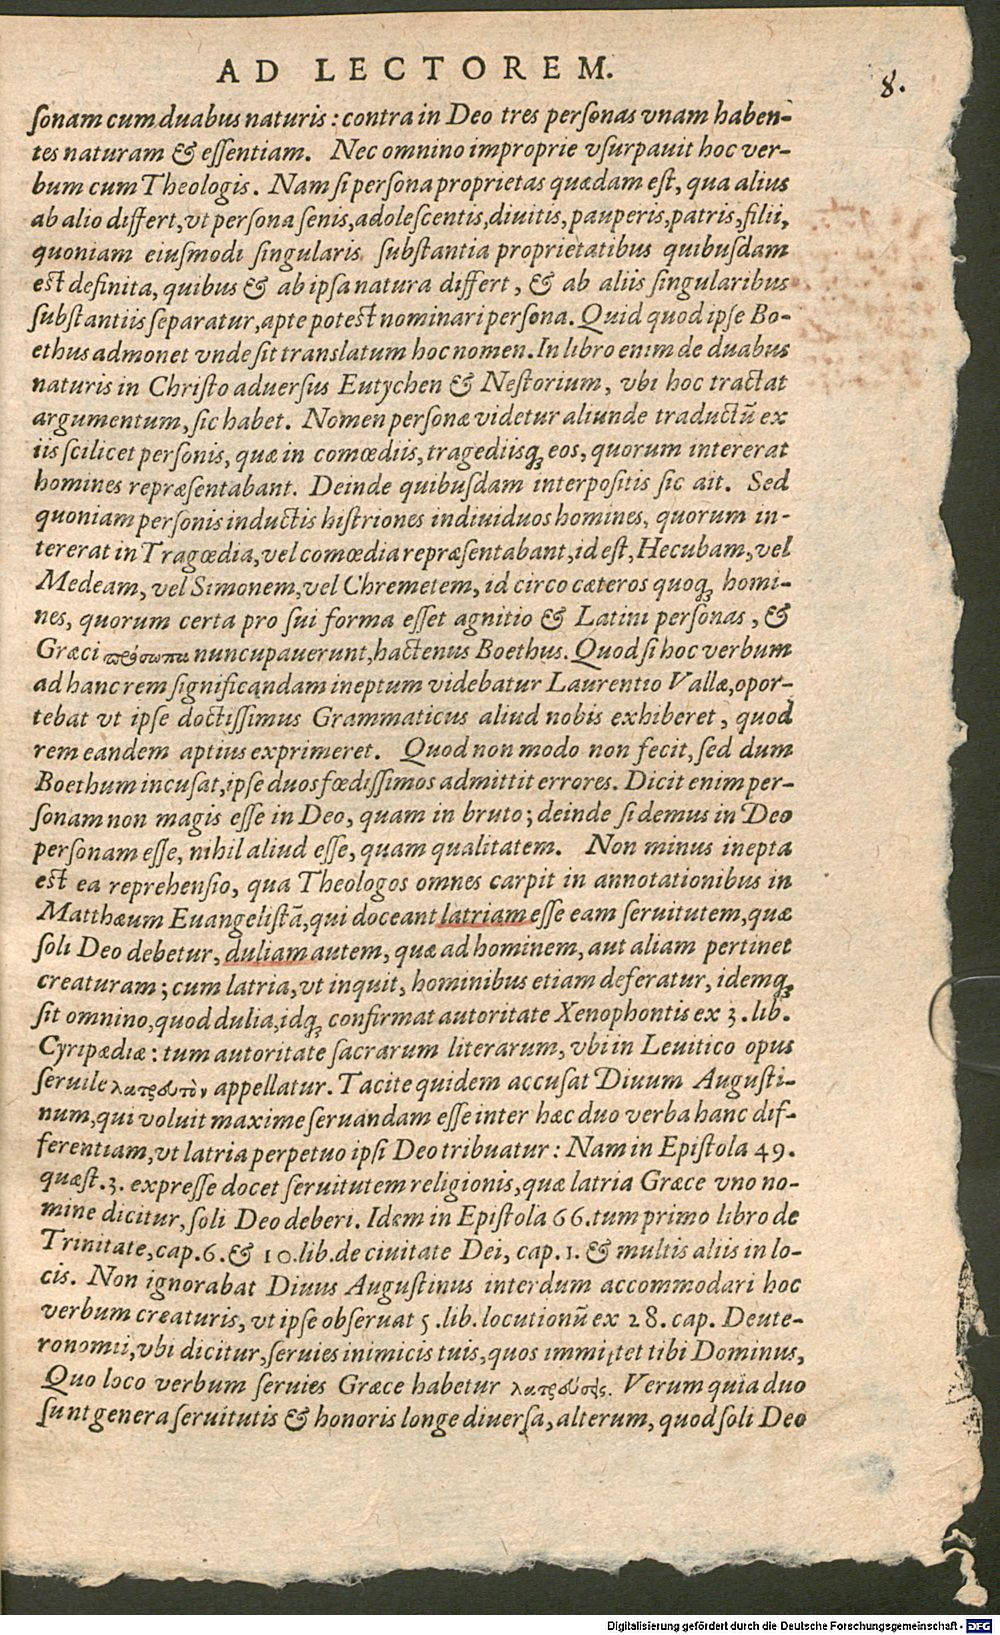 AD LECTOREM.
8.
ſonam cum duabus naturis : contra in Deo tres perſonas vnam haben-
tes naturam & eſſentiam. Nec omnino improprie vſurpauit hoc ver-
bum cum Theologis. Nam ſi perſona proprietas quædam eſt, qua alius
ab alio differt, vt perſona ſenis, adoleſcentis, diuitis, pauperis, patris, filii,
quoniam eiuſmodi ſingularis ſubſtantia proprietatibus quibuſdam
eſt definita, quibus & ab ipſa natura differt, & ab aliis ſingularibus
ſubſtantiis ſeparatur, apte poteſt nominari perſona. Quid quod ipſe Bo-
ethus admonet vnde ſit translatum hoc nomen. In libro enim de duabus
naturis in Chriſto aduerſius Eutychen & Neſtorium, vbi hoc tractat
argumentum, ſic habet. Nomen perſonæ videtur aliunde traductũ ex
iis ſcilicet perſonis, quæ in comœdiis, tragediisq́ꝫ eos, quorum intererat
homines repræſentabant. Deinde quibuſdam interpoſitis ſic ait. Sed
quoniam perſonis inductis hiſtriones indiuiduos homines, quorum in-
tererat in Tragœdia, vel comœdia repræſentabant, id eſt, Hecubam, vel
Medeam, vel Simonem, vel Chremetem, id circo cæteros quoqꝫ homi-
nes, quorum certa pro ſui forma eſſet agnitio & Latini perſonas, &
Græci πρόσωπα nuncupauerunt, hactenus Boethus. Quod ſi hoc verbum
ad hanc rem ſignificandam ineptum videbatur Laurentio Vallæ, opor-
tebat vt ipſe doctiſſimus Grammaticus aliud nobis exhiberet, quod
rem eandem aptius exprimeret. Quod non modo non fecit, ſed dum
Boethum incuſat, ipſe duos fœdiſſimos admittit errores. Dicit enim per-
ſonam non magis eſſe in Deo, quam in bruto; deinde ſi demus in Deo
perſonam eſſe, nihil aliud eſſe, quam qualitatem. Non minus inepta
eſt ea reprehenſio, qua Theologos omnes carpit in annotationibus in
Matthæum Euangeliſtã, qui doceant latriam eſſe eam ſeruitutem, quæ
ſoli Deo debetur, duliam autem, quæ ad hominem, aut aliam pertinet
creaturam; cum latria, vt inquit, hominibus etiam deferatur, idemqꝫ
ſit omnino, quod dulia, idqꝫ confirmat autoritate Xenophontis ex 3. lib.
Cyripædiæ: tum autoritate ſacrarum literarum, vbi in Leuitico opus
ſeruile λατρευτὸν appellatur. Tacite quidem accuſat Diuum Auguſti-
num, qui voluit maxime ſeruandam eſſe inter hæc duo verba hanc dif-
ferentiam, vt latria perpetuo ipſi Deo tribuatur: Nam in Epiſtola 49.
quæſt. 3. expreſſe docet ſeruitutem religionis, quæ latria Græce vno no-
mine dicitur, ſoli Deo deberi. Idem in Epiſtola 66. tum primo libro de
Trinitate, cap. 6. & 10. lib. de ciuitate Dei, cap. 1. & multis aliis in lo-
cis. Non ignorabat Diuus Auguſtinus interdum accommodari hoc
verbum creaturis, vt ipſe obſeruat 5. lib. locutionũ ex 28. cap. Deute-
ronomii, vbi dicitur, ſeruies inimicis tuis, quos immittet tibi Dominus,
Quo loco verbum ſeruies Græce habetur λατρεύσῃς. Verum quia duo
ſunt genera ſeruitutis & honoris longe diuerſa, alterum, quod ſoli Deo
Digitalisierung gefördert durch die Deutsche Forschungsgemeinschaft - DFG